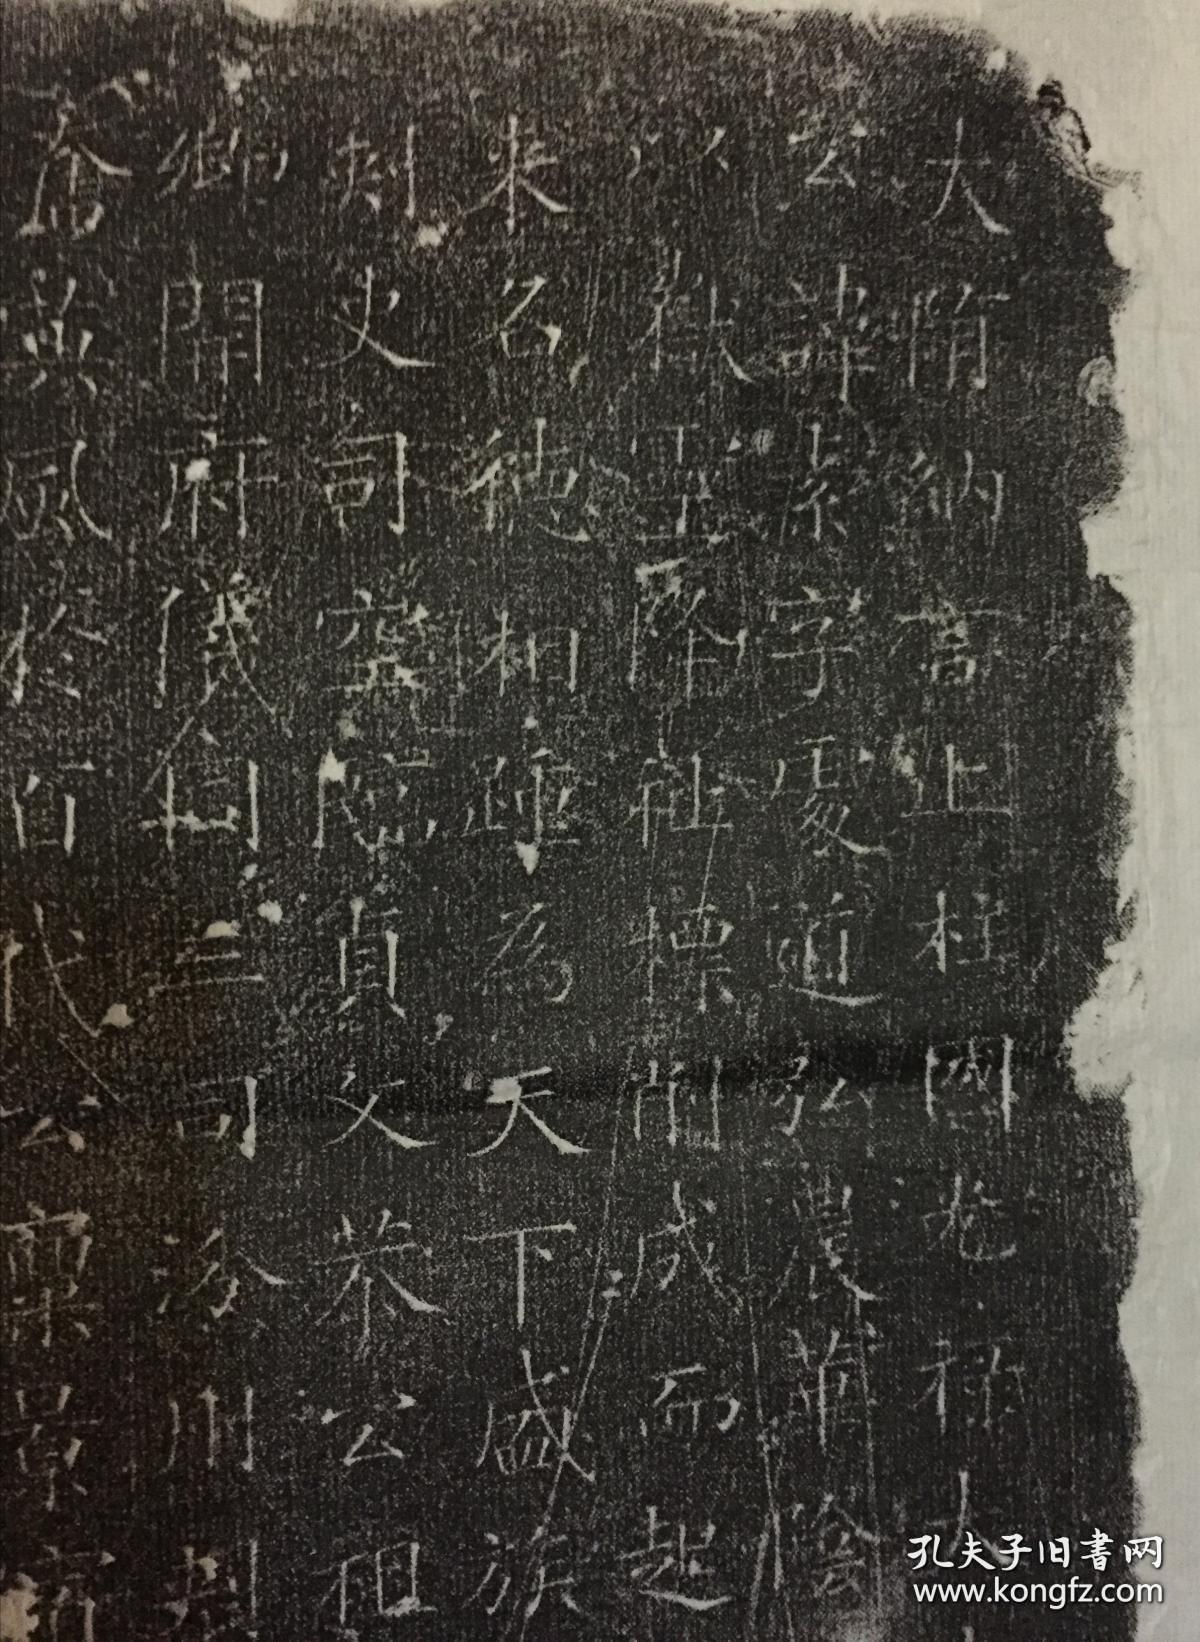 大隋納言上柱國光祿大
公諱素字處道弘農華陰
以
玉降祉標削成而起
來名德相踵為天下盛族
刺史司空臨貞文恭公祖
卿開府儀同三司汾州刺
英風於百代公稟
孔夫子旧書网
www.kongfz.com